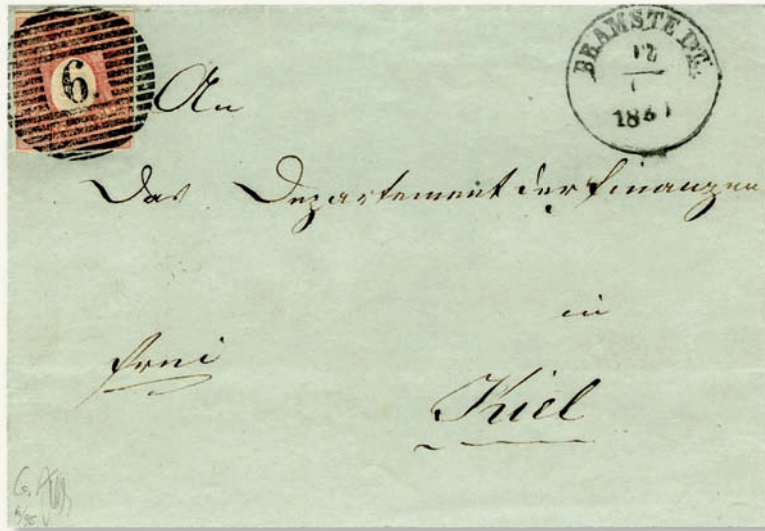 6.
BRAMSTEDT.
12
1
18
An
Das Departement der Finanzen
in
frei
Kiel
6/95